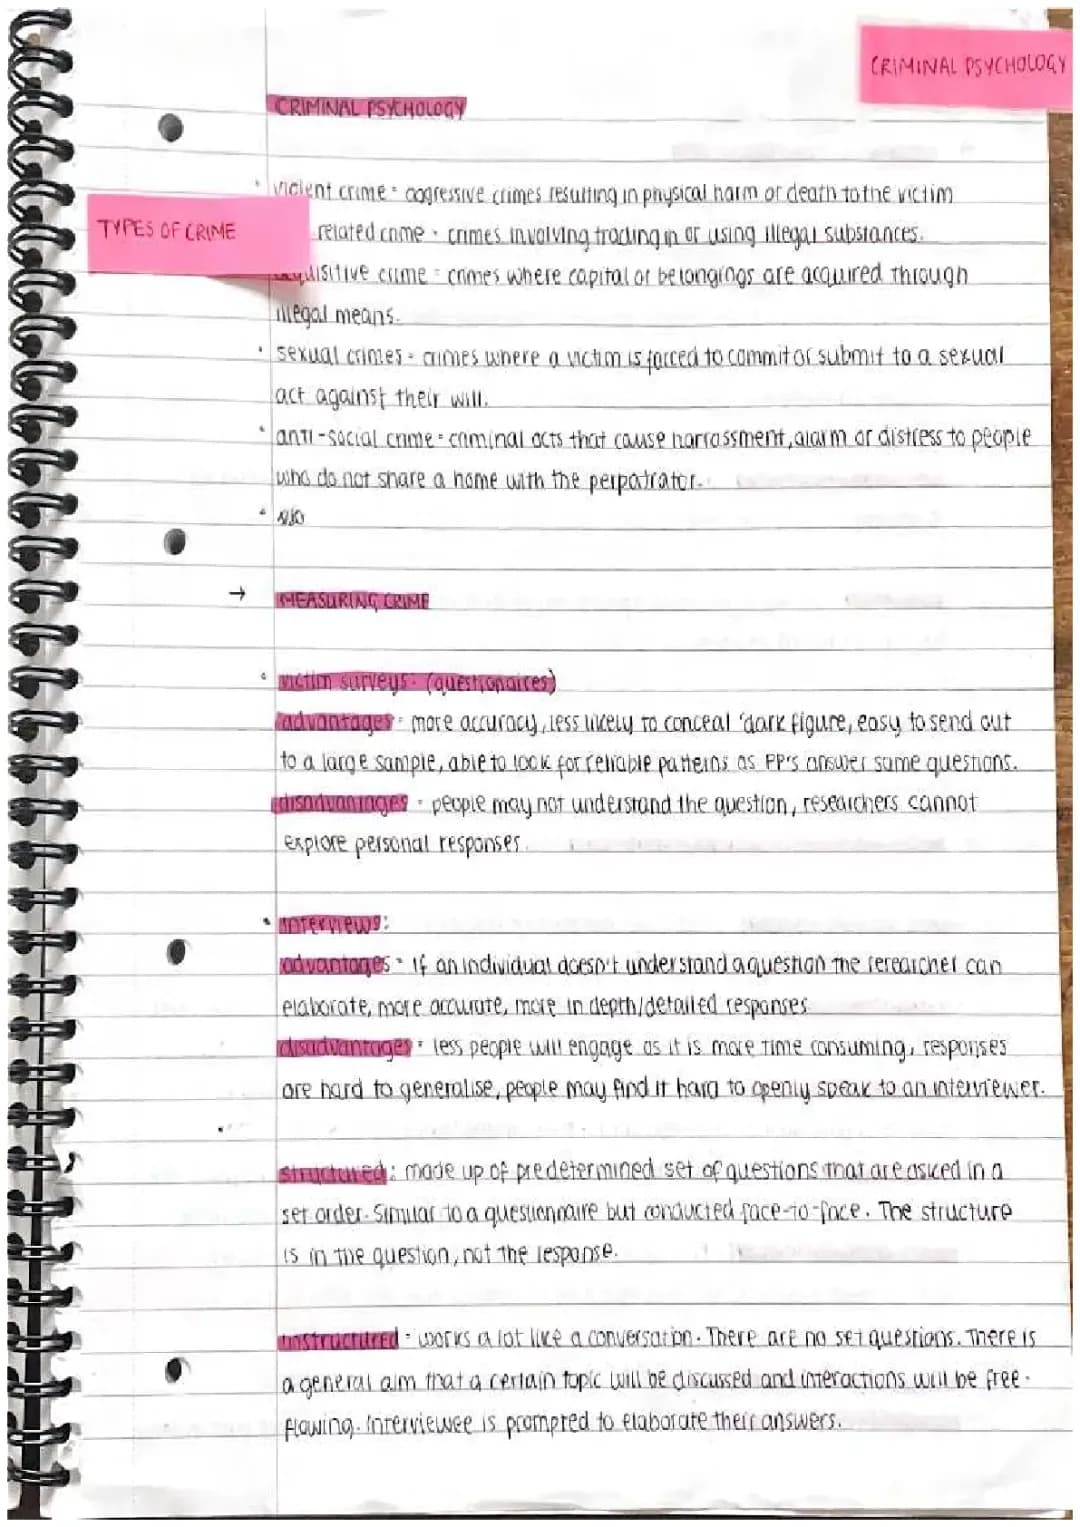 CRIMINAL PSYCHOLOGY
CRIMINAL PSYCHOLOGY
violent crime = aggressive crimes resulting in physical harm or death to the victim
TYPES OF CRIME
related crime = crimes involving trading in or using illegal substances.
acquisitive crime = crimes where capital or belongings are acquired through
illegal means.
• sexual crimes = crimes where a victim is forced to commit or submit to a sexual
act against their will.
• anti-social crime = criminal acts that cause harrassment, alarm or distress to people
who do not share a home with the perpatrator.
→ MEASURING CRIME
• victim surveys: (questionaires)
advantages = more accuracy, less likely to conceal 'dark figure, easy to send out
to a large sample, able to look for reliable patterns as PP's answer same questions.
disadvantages = people may not understand the question, researchers cannot
explore personal responses.
• interviews:
advantages = if an individual doesn't understand a question the rerearcher can
elaborate, more accurate, more in depth/detailed responses
disadvantages = less people will engage as it is more time consuming, responses
are hard to generalise, people may find it hard to openly speak to an interviewer.
structured: made up of predetermined set of questions that are asked in a
set order. Similar to a questionnaire but conducted face-to-face. The structure
is in the question, not the response.
unstructured = works a lot like a conversation. There are no set questions. There is
a general aim that a certain topic will be discussed and interactions will be free-
flowing. Interviewee is prompted to elaborate their answers.